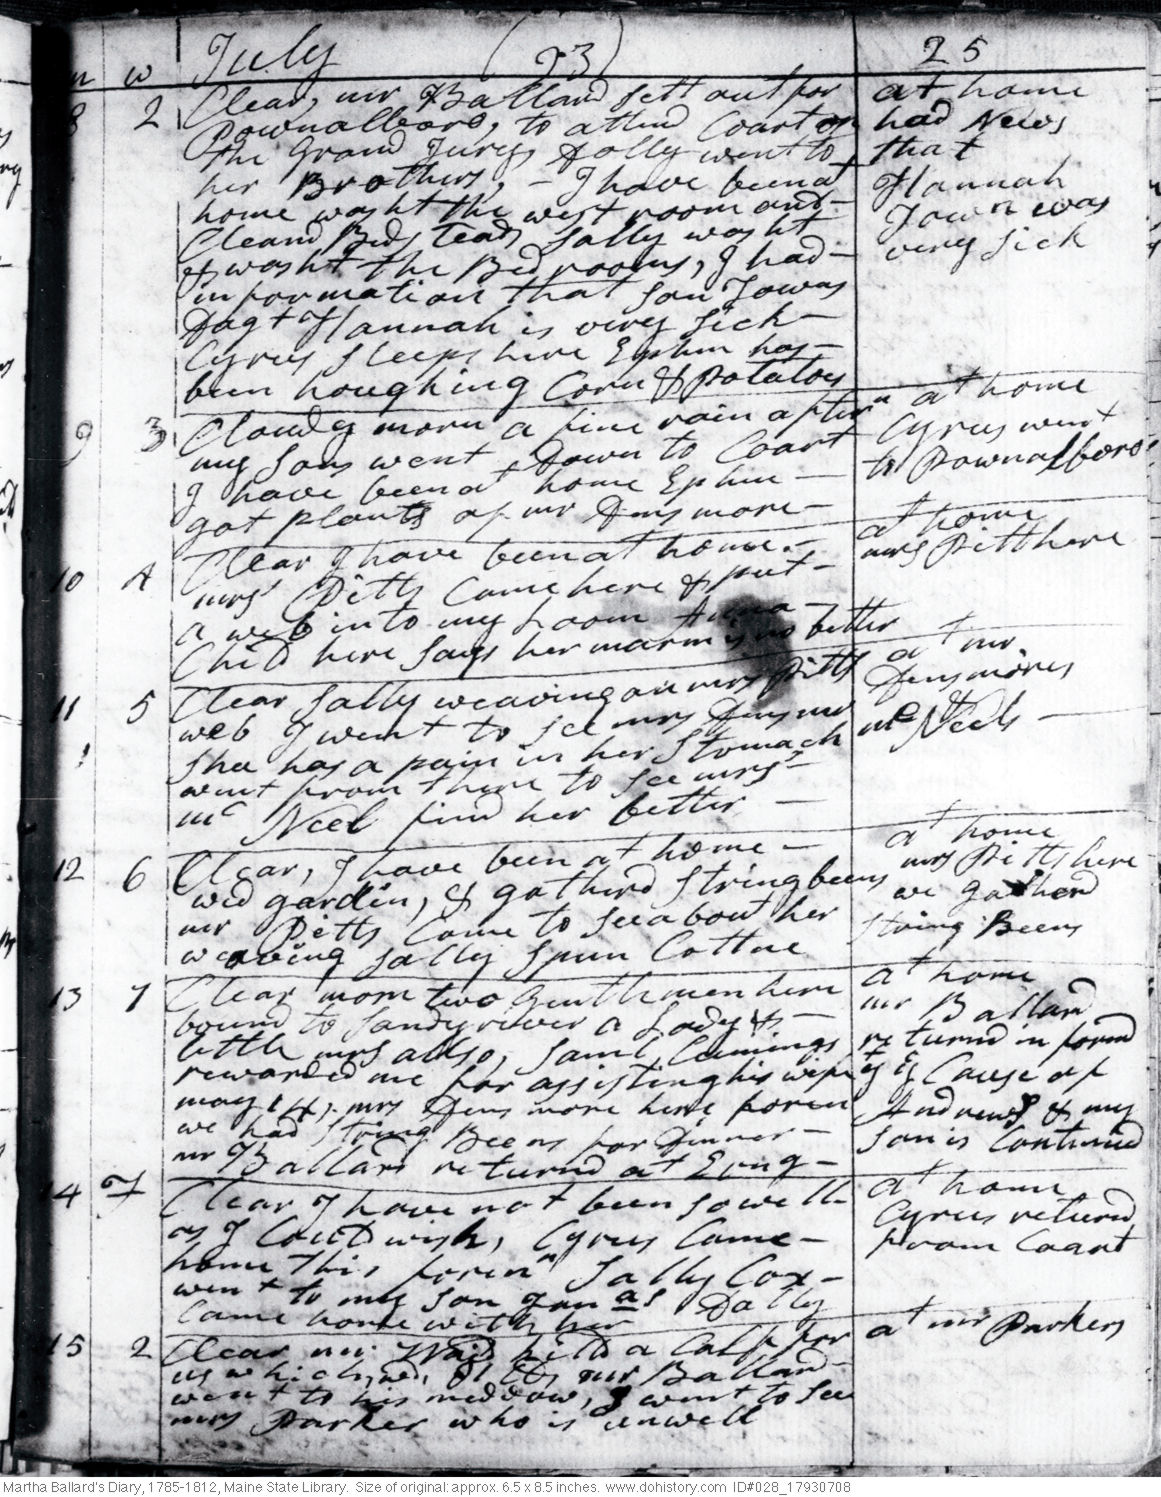 July (93) 25
m w
8 2 Clear, mr Ballard sett out for
Pownalboro, to attend Coart on
the Grand Jury, Dolly went to
her Brothers, - I have been at
home washt the west room and -
Cleand Bedsteads Sally washt
& washt the Bed rooms, I had -
information that son Towns
Dagt Hannah is very sick -
Cyrus sleeps here Ephm has -
been houghing Corn & Potatoes
at home
had News
that
Hannah
Town was
very sick
9 3 Cloudy morn a fine rain aftern
my sons went Down to Coart
I have been at home Ephm -
got plants of mr Densmore -
at home
Cyrus went
to Pownalboro
10 4 Clear I have been at home. -
mrs Pitts Came here & put -
a web into my Loom -
Child here says her marm is no better
at home
mrs Pitt here
11 5 Clear Sally weaving on mrs Pitts
web I went to see mrs Densmor
shee has a pain in her stomach
went from there to see mrs -
mc Neel find her better -
at mr
Densmores
mc Neels -
12 6 Clear, I have been at home -
wed garden, & gatherd string beens
mr Pitts Come to see about her
weaving Sally spun Cottne
at home
mrs Pitts here
we gatherd
string Beens
13 7 Clear morn two Gentlemen here
bound to Sandy river a Lady & -
little mrs allso, Saml Cumings
rewarded me for assisting his wife
may 14, mrs Densmore here foren
we had string Beens for Dinner -
mr Ballard returnd at Evng -
at home
mr Ballard
returnd inform
ed ye Cause of
Andrews & my
son is Continued
14 F Clear I have not been so well
as I Could wish, Cyrus Came -
home this foren Sally Cox -
went to my son Jonas Dolly
Came home with her
at home
Cyrus returnd
from Coart
15 2 Clear mr Ward kild a Calf for
us which wd, lb mr Ballard -
went to his meddow, I went to see
mrs Parker who is unwell
at mr Parkers
Martha Ballard's Diary, 1785-1812, Maine State Library. Size of original: approx. 6.5 x 8.5 inches. www.dohistory.com ID#028_17930708